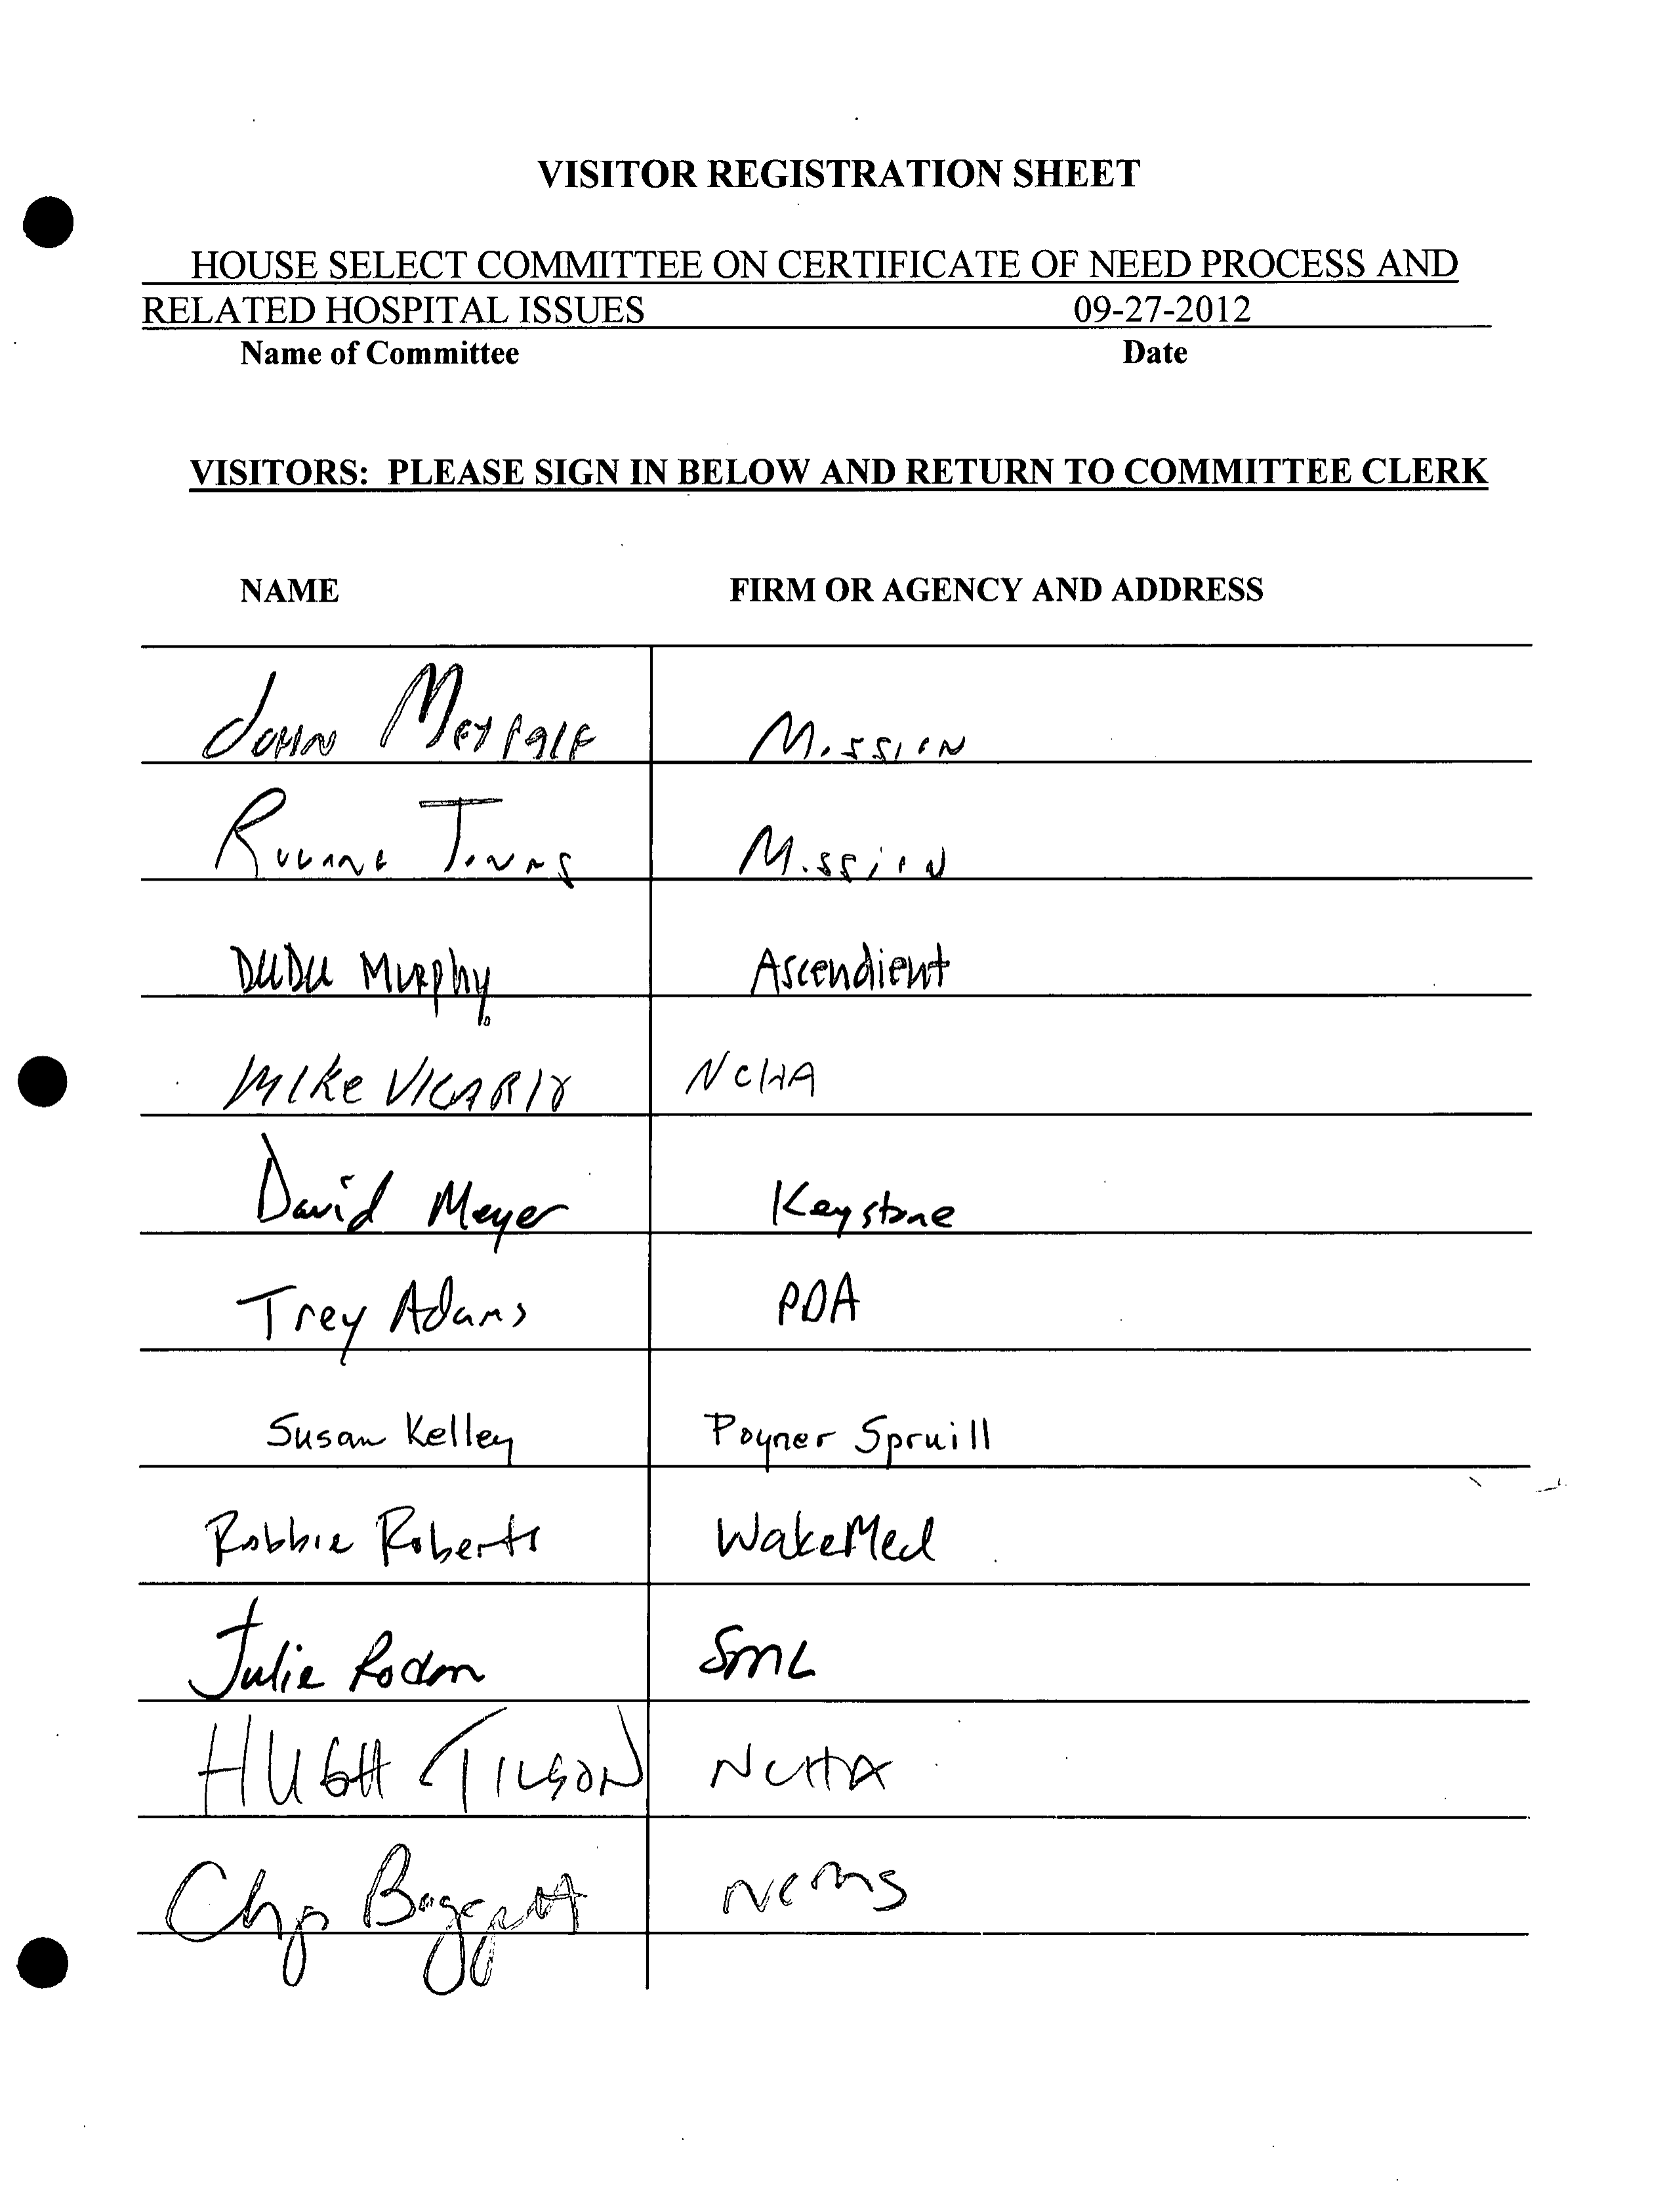 VISITOR REGISTRATION SHEET
HOUSE SELECT COMMITTEE ON CERTIFICATE OF NEED PROCESS AND
RELATED HOSPITAL ISSUES 09-27-2012
Name of Committee Date
VISITORS: PLEASE SIGN IN BELOW AND RETURN TO COMMITTEE CLERK
NAME FIRM OR AGENCY AND ADDRESS
JOHN Metcalf Mission
Mission
DUDU Murphy Ascendient
Mike VICARIO NCHA
David Meyer Keystone
Trey Adams PDA
Susan Kelley Poyner Spruill
Robbie Roberts WakeMed
Julie SML
HUGH TILSON NCHA
Chip Baggett NCMS